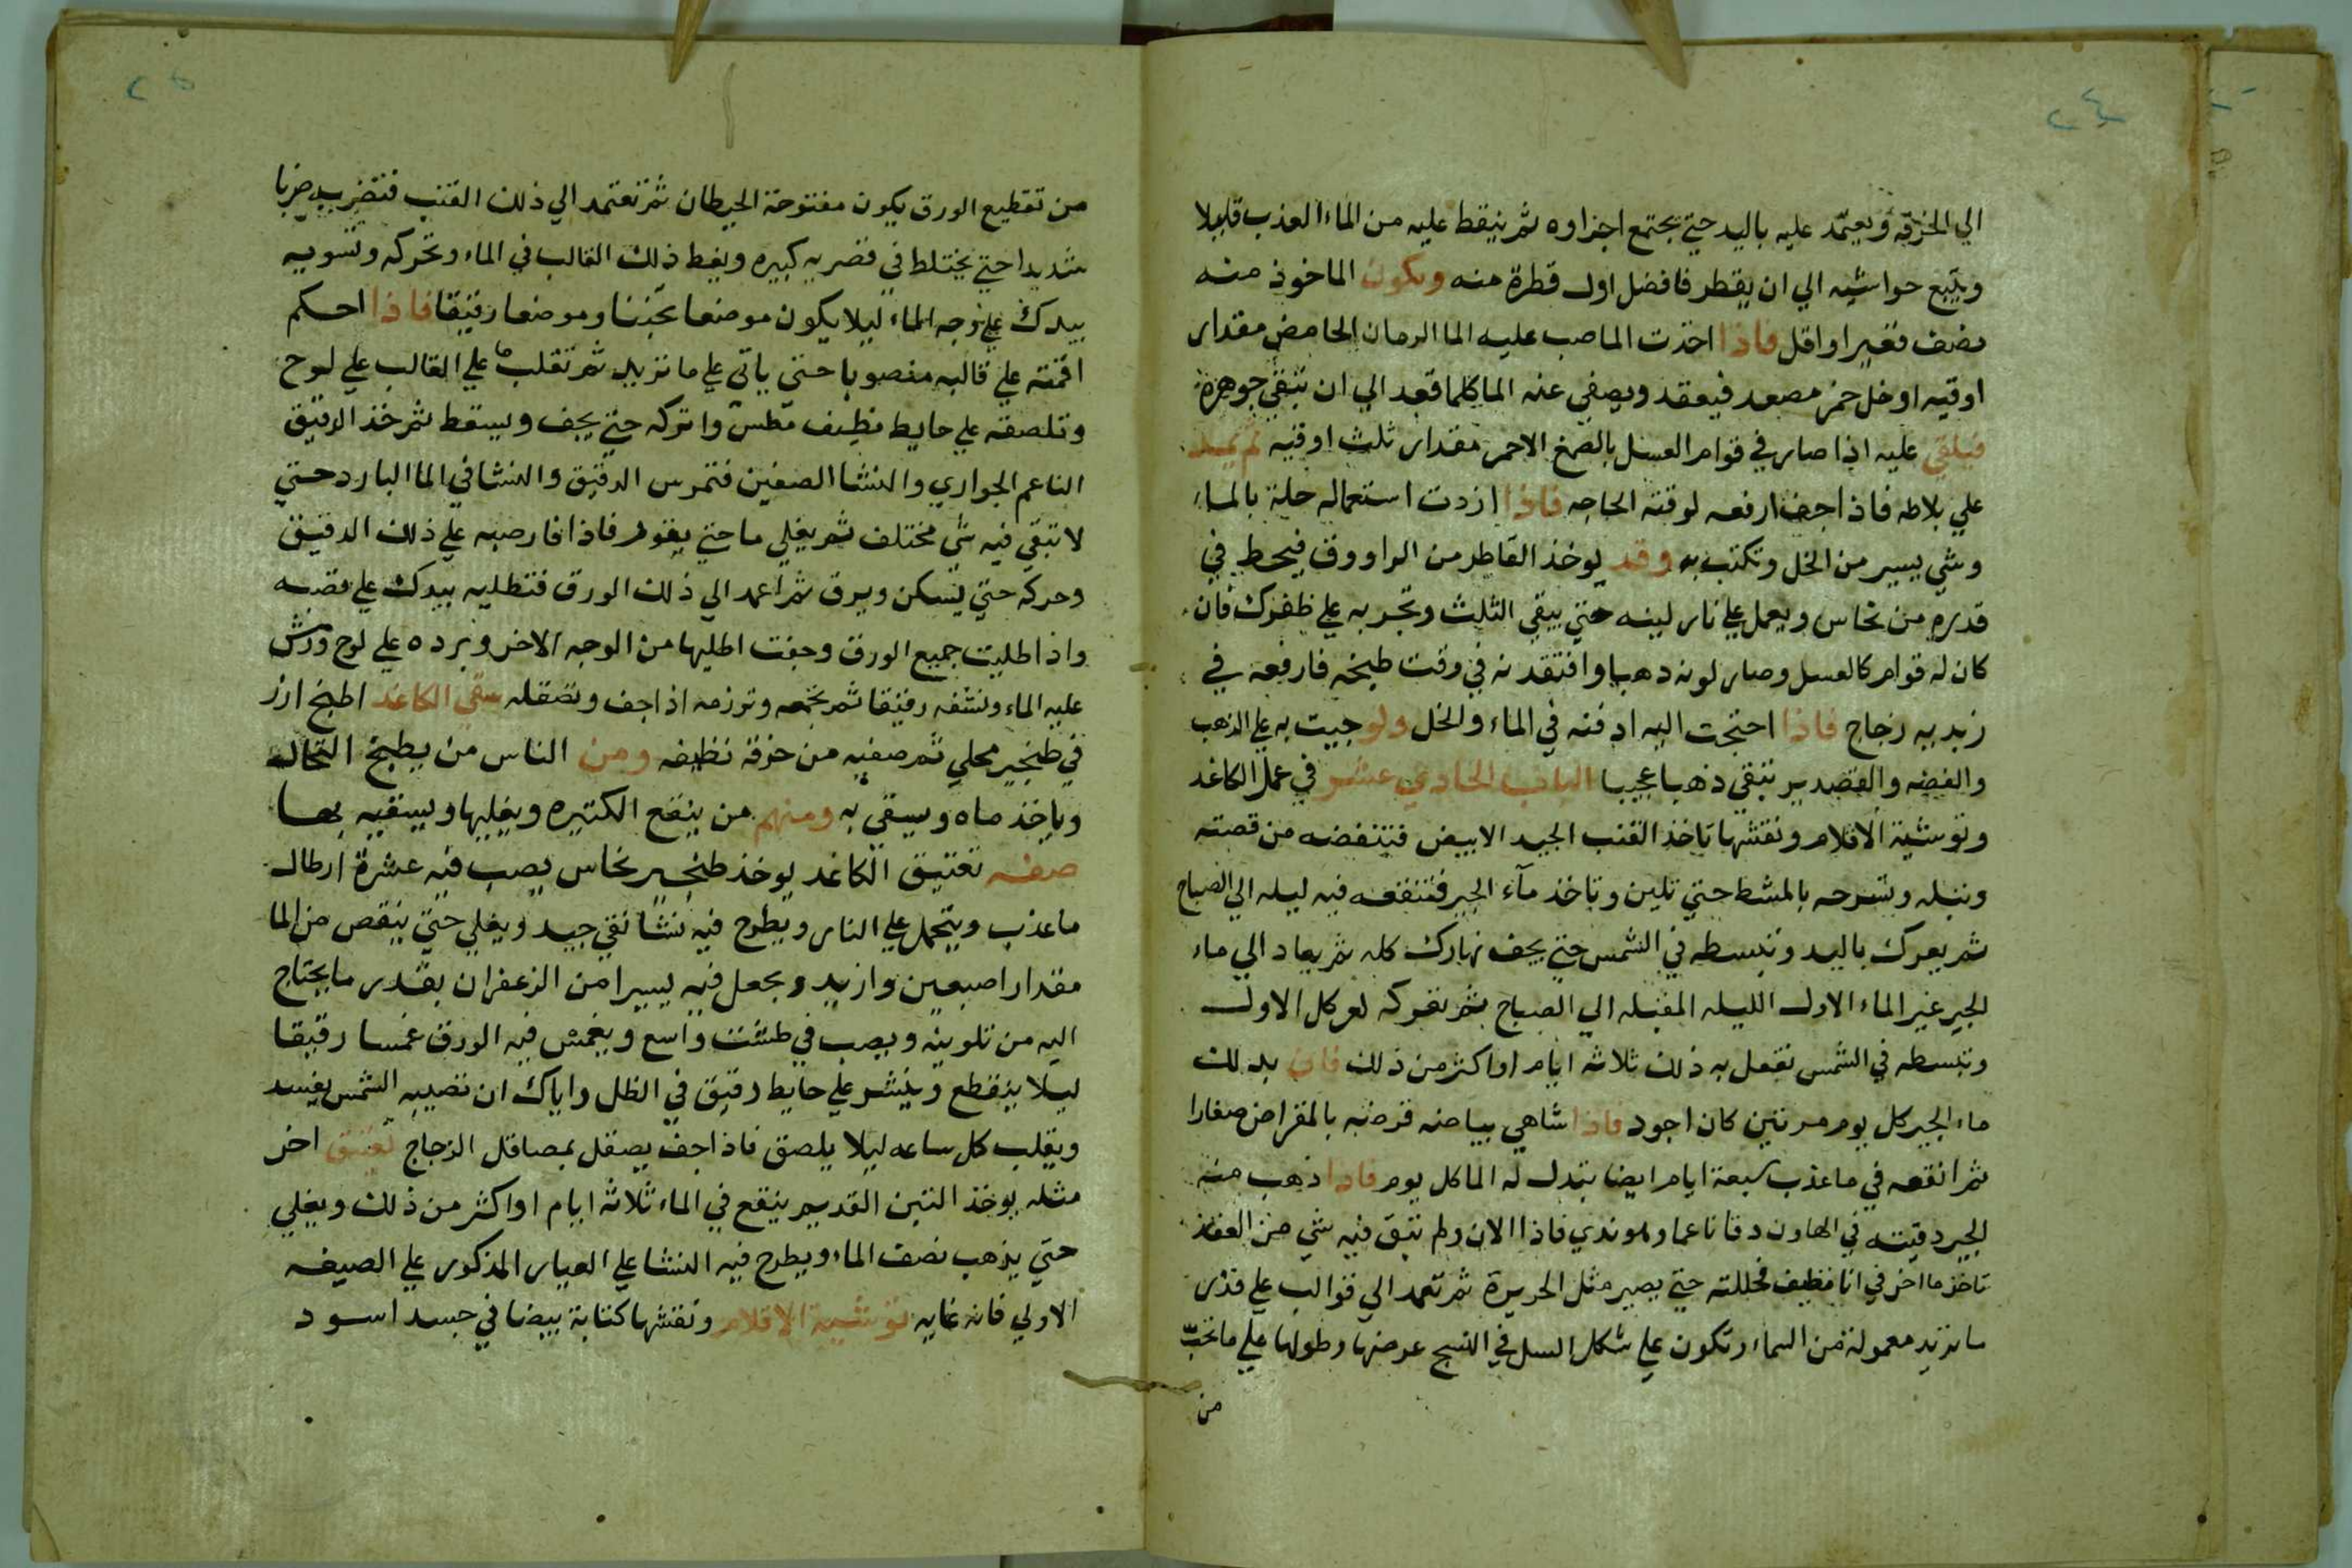 ٢٤
الي الخرقه ويعتمد عليه باليد حتي يجتمع اجزاوه ثم ينقط عليه من الماء العذب قليلا
ويتبع حواشيه الي ان يقطر فافضل اول قطرة منه ويكون الماخوذ منه
نصف قفيرا او اقل فاذا اخذت الما صب عليه الما الرمان الحامض مقدار
اوقيه او خل خمر مصعد فيعقد ويصفي عنه الما كلما قعد الي ان تبقي جوهرة
فيلقي عليه اذا صار في قوام العسل بالصمغ الاحمر مقدار ثلث اوقيه ثم
علي بلاطه فاذا جف ارفعه لوقته الحاجه فاذا اردت استعماله حلة بالماء
وشي يسير من الخل وتكتب به وقد يوخذ القاطر من الراووق فيحط في
قدره من نحاس ويعمل علي نار لينه حتي يبقي الثلث وتجربه علي ظفرك فان
كان له قوام كالعسل وصار لونه دهبيا وافتقدنه في وقت طبخه فارفعه في
زبديه زجاج فاذا احتجت اليه ادفنه في الماء والخل ولو جيت به علي الذهب
والفضه والقصدير تبقي ذهبا عجيبا الباب الحادي عشر في عمل الكاغد
وتوشية الاقلام ونقشها تاخذ القنب الجيد الابيض فتنفضه من قصبته
وتبله وتسرحه بالمشط حتي تلين وتاخذ مآء الجير فتنقعه فيه ليله الي الصباح
ثم يعرك باليد وتبسطه في الشمس حتي يجف نهارك كله ثم يعاد الي ماء
الجير غير الماء الاول الليله المقبله الي الصباح ثم تعركه لعركل الاول
وتبسطه في الشمس تفعل به ذلك ثلاثه ايام او اكثر من ذلك فان بدلت
ماء الجير كل يوم مرتين كان اجود فاذا تناهي بياضه قرضه بالمقراض صغارا
ثم انقعه في ما عذب سبعة ايام ايضا تبدل له الما كل يوم فاذا ذهب منه
الجير دقيته في الهاون دقا ناعما وهو ندي فاذا الان ولم تبق فيه شي من العقد
تاخذ ما اخر في انا نظيف فحللته حتي يصير مثل الحريرة ثم تعمد الي قوالب علي قدر
ما تريد معمولة من السماء وتكون علي شكل السل في النسج عرضها وطولها علي ما تحب
من
٢٥
من تقطيع الورق يكون مفتوحة الحيطان ثم تعتمد الي ذلك القنب فتضربه ضربا
شديدا حتي يختلط في قصريه كبيره ويغط ذلك القالب في الماء وتحركه وتسويه
بيدك علي وجه الماء ليلا يكون موضعا ثخينا وموضعا رقيقا فاذا احكم
اقمته علي قالبه منصوبا حتي ياتي علي ما تريد ثم تقلب علي القالب علي لوح
وتلصقه علي حايط نظيف مطلس واتركه حتي يجف ويسقط ثم خذ الدقيق
الناعم الحواري والنشا الصفين فتمرس الدقيق والنشا في الما البارد حتي
لا تبقي فيه شي مختلف ثم يغلي ما حتي يفور فاذا فار صبه علي ذلك الدقيق
وحركه حتي يسكن ويرق ثم اعمد الي ذلك الورق فتطليه بيدك علي قصبه
واذا طليت جميع الورق وجفت اطليها من الوجه الاخر وبرده علي لوح ورش
عليه الماء ونشفه رقيقا ثم تجمعه وترزمه اذا جف وتصقله سقي الكاغد اطبخ ارز
في طنجير محلي ثم صفيه من خرقة نظيفه ومن الناس من يطبخ النخاله
وياخذ ماه ويسقي به ومنهم من ينقع الكتيره ويغليها ويسقيه بها
صفه تعتيق الكاغد يوخذ طنجير نحاس يصب فيه عشرة ارطال
ما عذب ويحمل علي النار ويطرح فيه نشا نقي جيد ويغلي حتي ينقص من الما
مقدار اصبعين وازيد ويجعل فيه يسيرا من الزعفران بقدر ما يحتاج
اليه من تلوينه ويصب في طشت واسع ويغمس فيه الورق غمسا رقيقا
ليلا ينقطع وينشر علي حايط رقيق في الظل واياك ان تصيبه الشمس يفسد
ويقلب كل ساعه ليلا يلصق فاذا جف يصقل بمصاقل الزجاج تعتيق اخر
مثله يوخذ التبن القديم ينقع في الماء ثلاثه ايام او اكثر من ذلك ويغلي
حتي يذهب نصف الماء ويطرح فيه النشا علي العيار المذكور علي الصيفه
الاولي فانه غايه توشية الاقلام ونقشها كتابة بيضا في جسد اسود